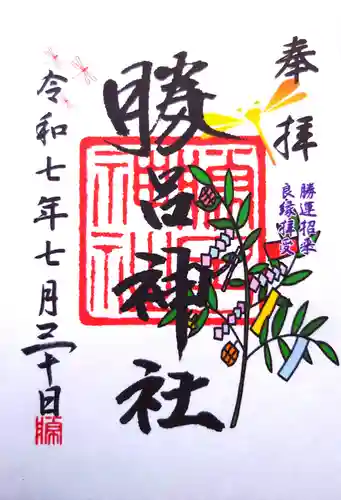 奉拝
勝運招来
良縁拝受
勝呂神社
令和七年七月三十日
勝呂神社
勝